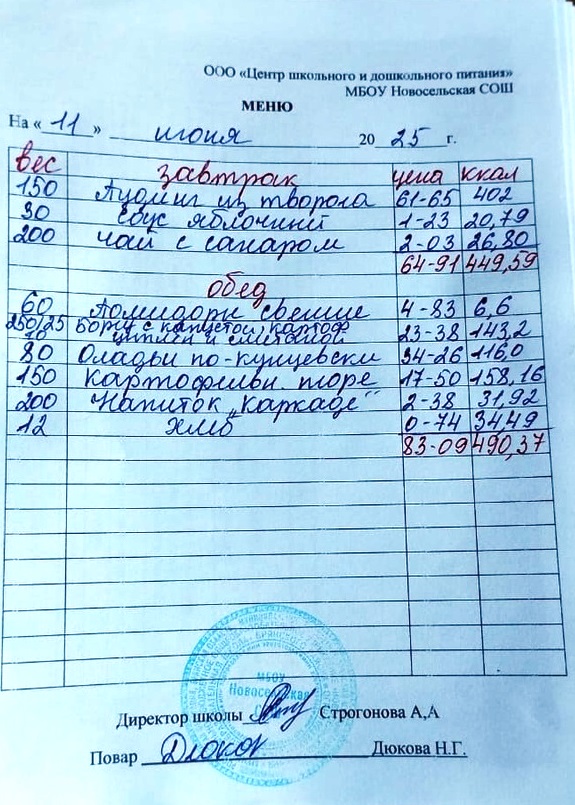 ООО «Центр школьного и дошкольного питания»
МБОУ Новосельская СОШ
МЕНЮ
На « 11 » июня 20 25 г.
вес завтрак цена ккал
150 Пудинг из творога 61-65 402
30 соус яблочний 1-23 20,79
200 чай с сахаром 2-03 26,80
64-91 449,59
обед
60 Помидоры свежие 4-83 6,6
250/25 борщ с капустой, картоф 23-38 143,2
10 цыплен и сметаной
80 Оладьи по-кунцевски 34-26 116,0
150 картофельн. пюре 17-50 158,16
200 Напиток „Каркаде" 2-38 31,92
12 хлеб 0-74 34,49
83-09 490,37
МБОУ
Новосельская
Директор школы Строгонова А,А
Повар Дюкова Н.Г.